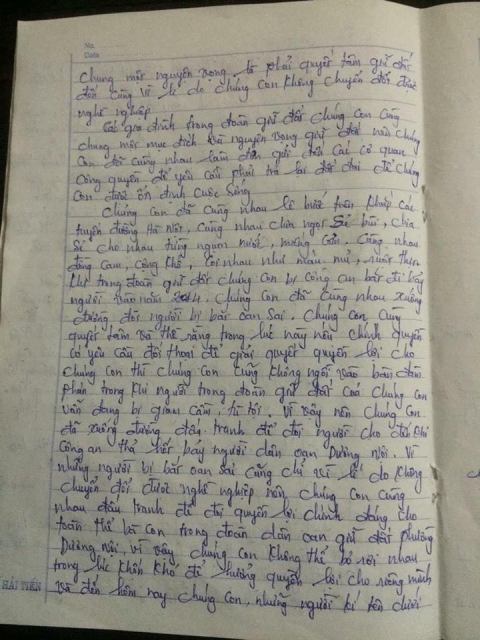 No.
Date
Chung một nguyện vọng là phải quyết tâm giữ đất
đến cùng vì lí do chúng con không chuyển đổi được
nghề nghiệp.
Các gia đình trong đoàn giữ đất chúng con cùng
chung một mục đích và nguyện vọng giữ đất nên chúng
con đã cùng nhau làm đơn gửi đến các cơ quan
công quyền để yêu cầu phải trả lại đất đai để chúng
con được ổn định cuộc sống.
Chúng con đã cùng nhau lê bước trên khắp các
tuyến đường Hà Nội, cùng nhau chia ngọt sẻ bùi, chia
sẻ cho nhau từng ngụm nước, miếng cơm. Cùng nhau
đồng cam, cộng khổ, coi như máu mủ, ruột thịt.
Khi trong đoàn giữ đất chúng con bị công an bắt đi bảy
người vào năm 2014. Chúng con đã cùng nhau xuống
đường đòi người bị bắt oan sai. Chúng con cùng
quyết tâm và thề rằng trong lúc này nếu chính quyền
có yêu cầu đối thoại để giải quyết quyền lợi cho
chúng con thì chúng con cũng không ngồi vào bàn đàm
phán trong khi người trong đoàn giữ đất của chúng con
vẫn đang bị giam cầm, tù tội. Vì vậy nên chúng con
đã xuống đường đấu tranh để đòi người cho đến khi
công an thả hết bảy người dân oan Dương Nội. Vì
những người bị bắt oan sai cũng chỉ vì lí do không
chuyển đổi được nghề nghiệp nên chúng con cùng
nhau đấu tranh để đòi quyền lợi chính đáng cho
toàn thể bà con trong đoàn dân oan giữ đất phường
Dương Nội, vì vậy chúng con không thể bỏ rơi nhau
trong lúc khốn khó để hưởng quyền lợi cho riêng mình
và đến hôm nay chúng con, những người kí tên dưới
HẢI TIẾN